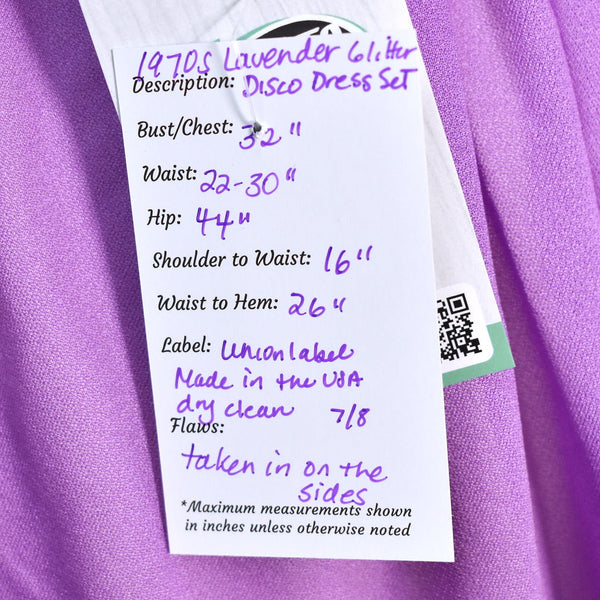 1970s Lavender Glitter
Description: Disco Dress Set
Bust/Chest: 32"
Waist: 22-30"
Hip: 44"
Shoulder to Waist: 16"
Waist to Hem: 26"
Label: Union label
Made in the USA
dry clean 7/8
Flaws:
taken in on the
sides
*Maximum measurements shown
in inches unless otherwise noted